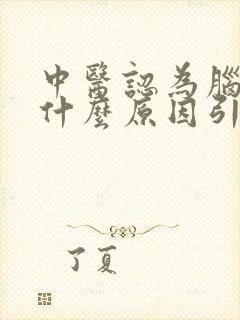 中醫認為腦
什麼原因引
了夏